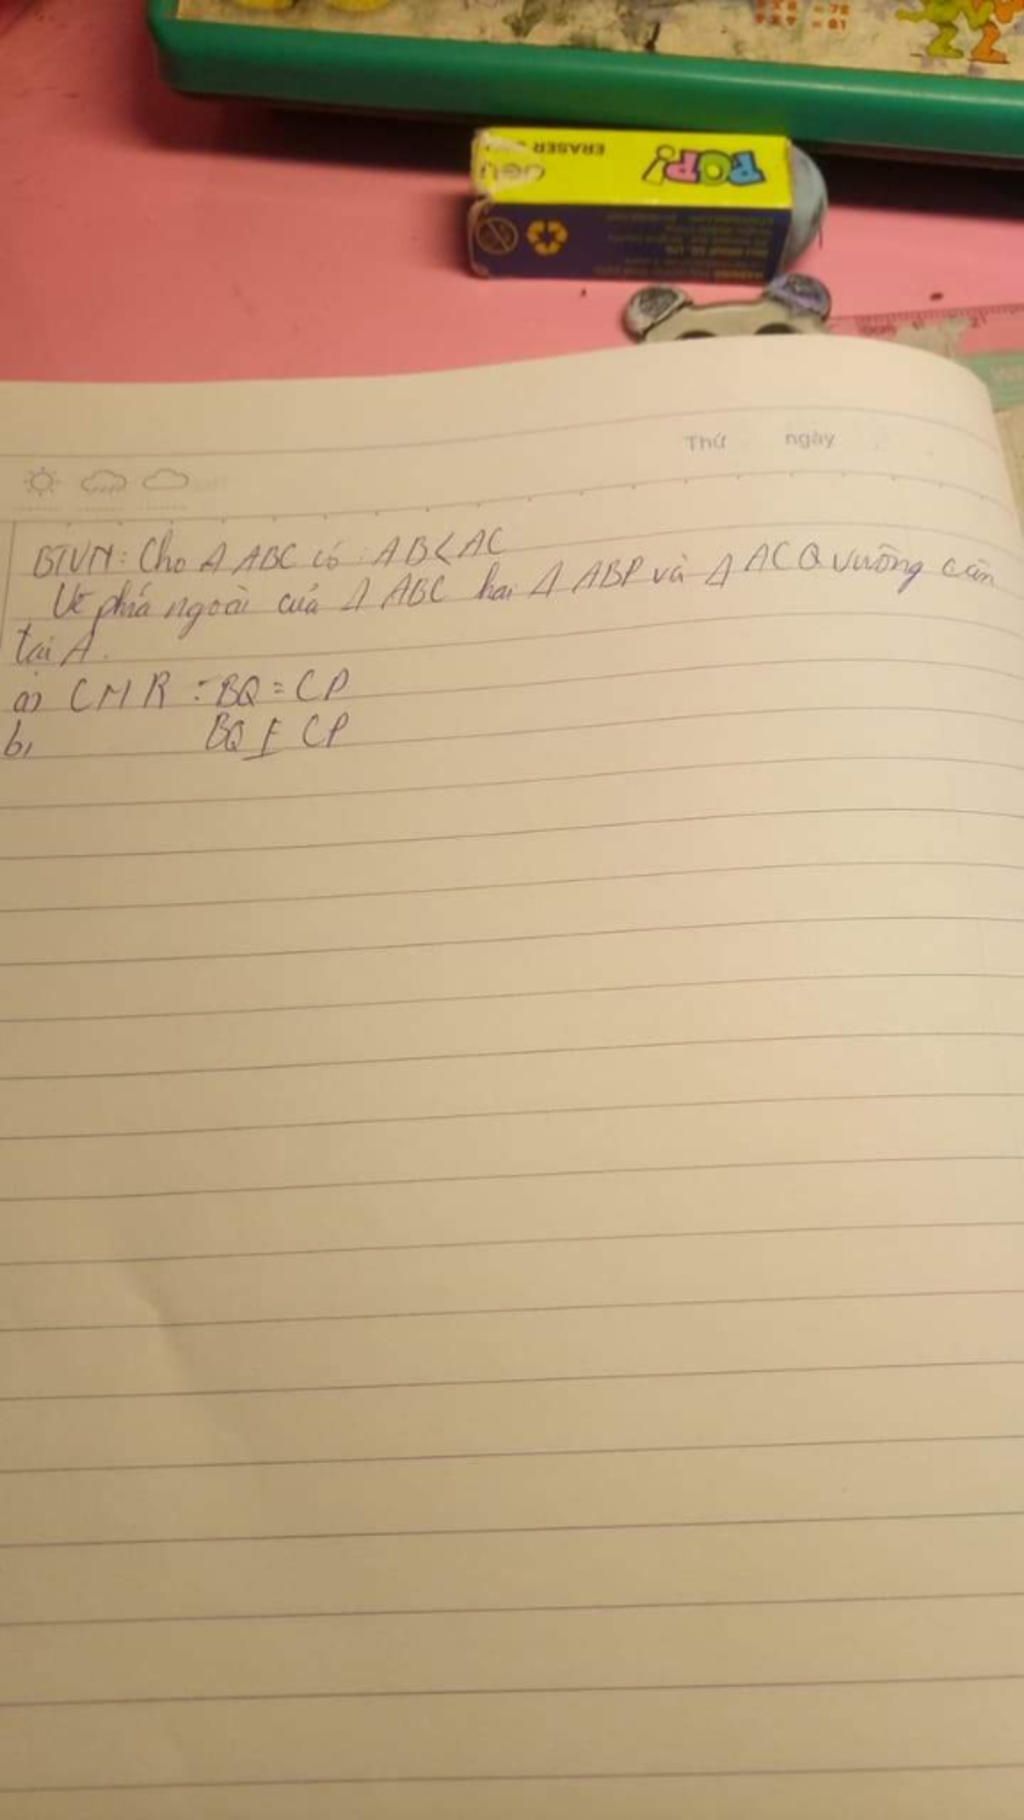 9 x 8 = 72
9 x 9 = 81
ERASER
deli
POP!
Thứ ngày
BTVN: Cho Δ ABC có: AB < AC
Vẽ phía ngoài của Δ ABC hai Δ ABP và Δ ACQ vuông cân
tại A.
a) CMR: BQ = CP
b, BQ ⊥ CP